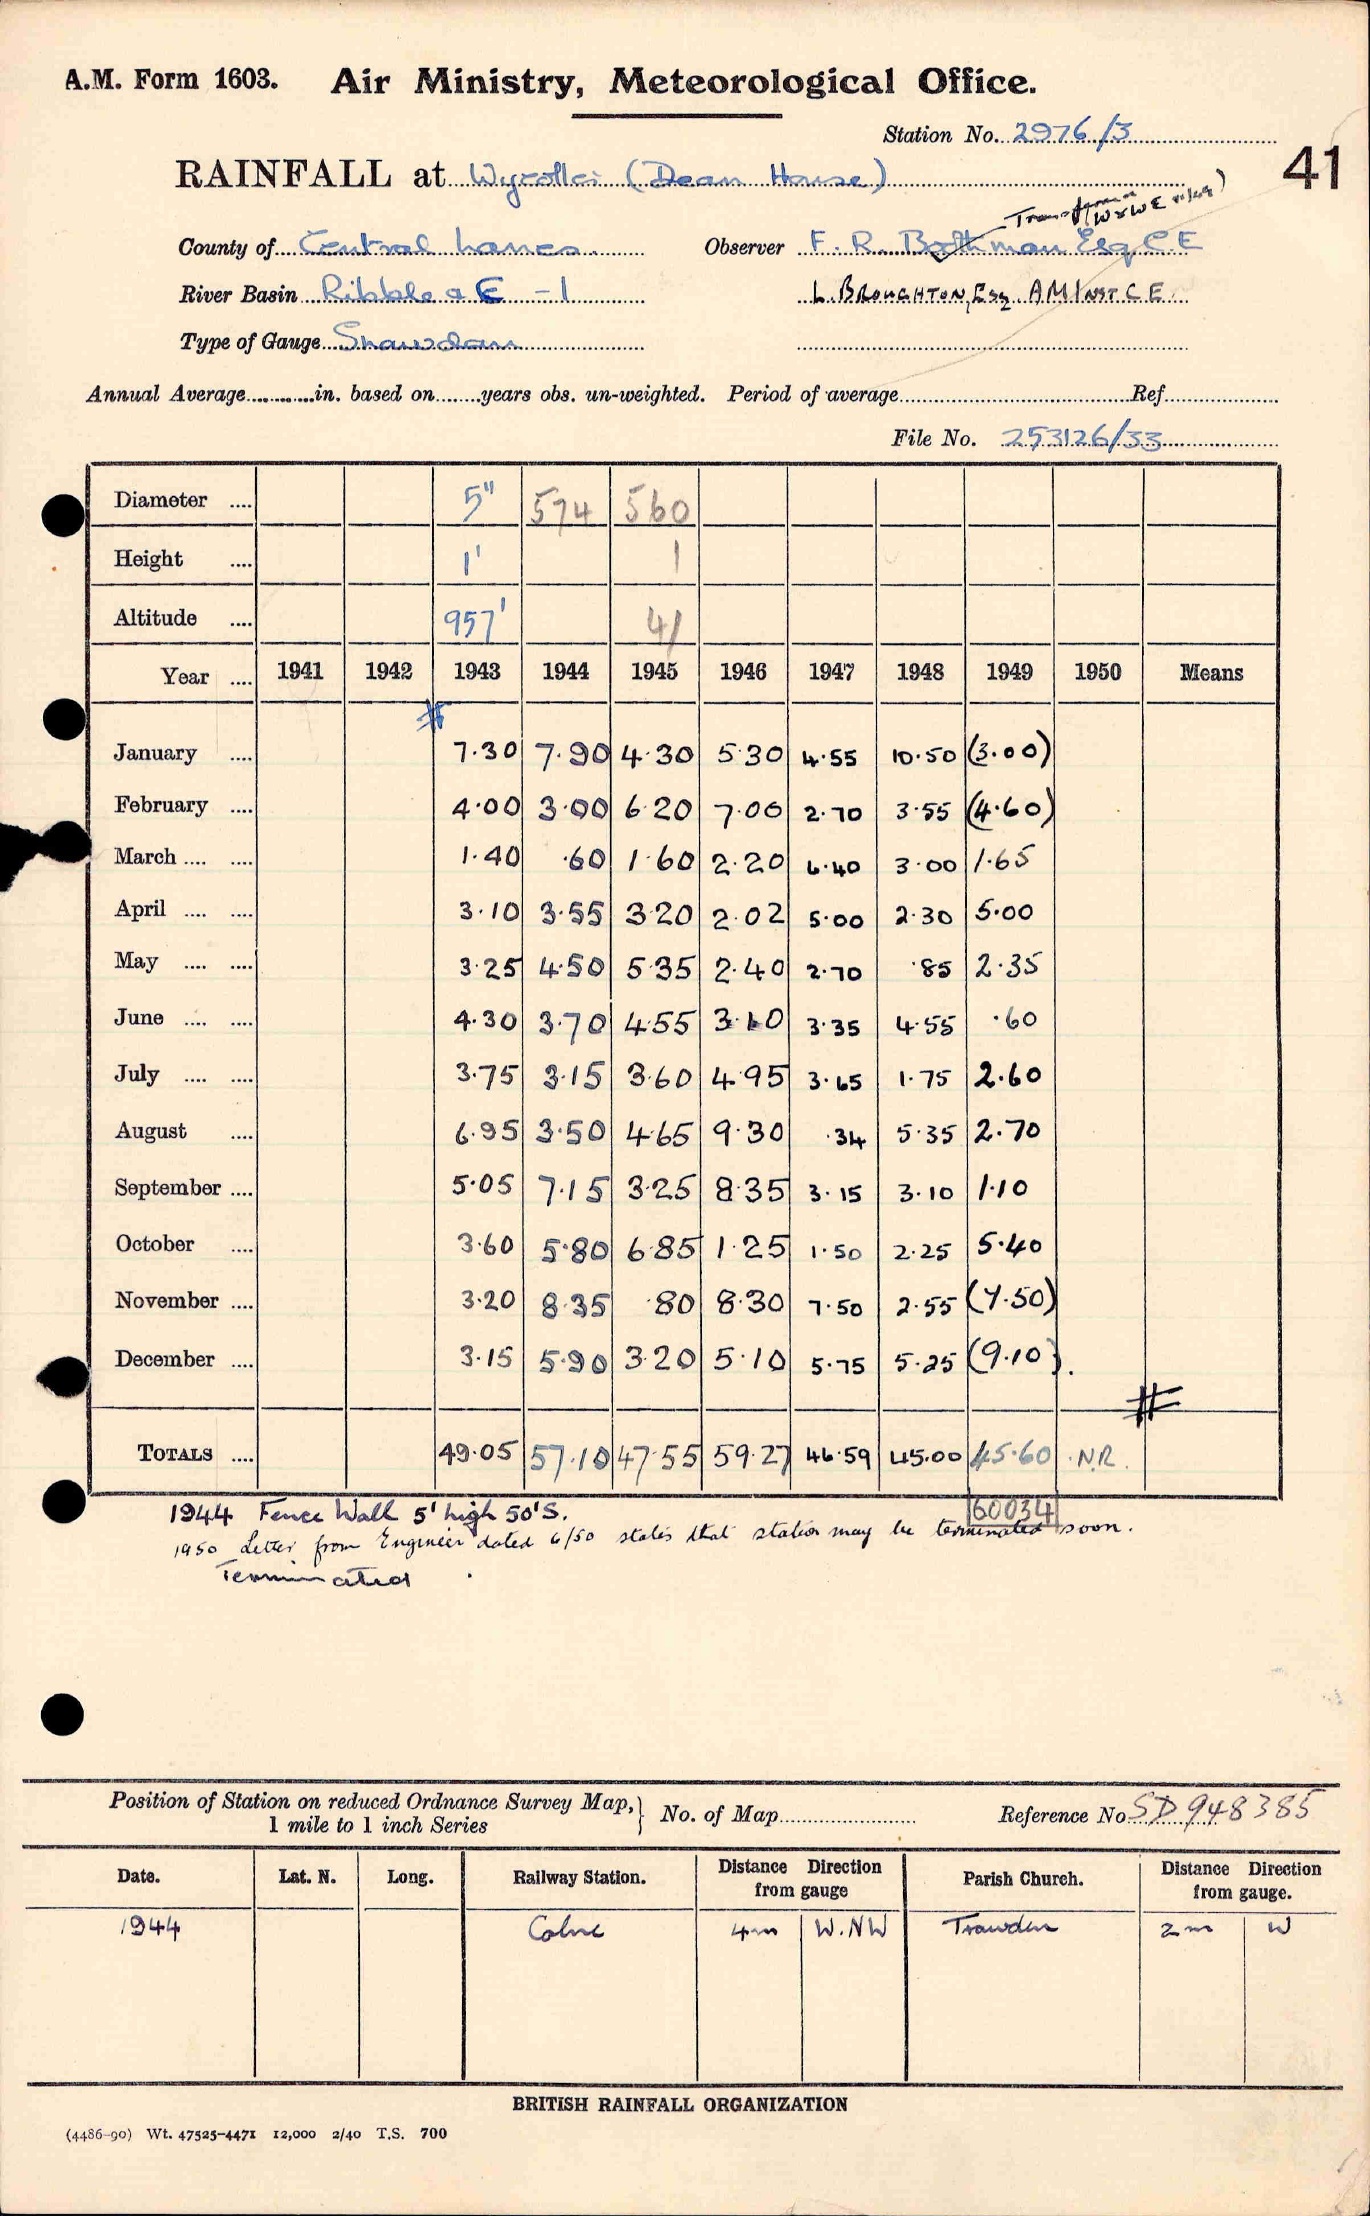 A.M. Form 1603. Air Ministry, Meteorological Office.
Station No. 2976/3
41
RAINFALL at Wycoller (Dean House)
County of Central Lancs. Observer F. R. Boothman Esq C.E
River Basin Ribble & E - 1 L. BROUGHTON, Esq AMINST C E.
Type of Gauge Snowdon
Annual Average in. based on years obs. un-weighted. Period of average Ref.
File No. 253126/33
Diameter .... 5" 574 560
Height .... 1' 1
Altitude .... 957' 41
Year .... 1941 1942 1943 1944 1945 1946 1947 1948 1949 1950 Means
January .... 7.30 7.90 4.30 5.30 4.55 10.50 (3.00)
February .... 4.00 3.00 6.20 7.00 2.70 3.55 (4.60)
March .... .... 1.40 .60 1.60 2.20 6.40 3.00 1.65
April .... .... 3.10 3.55 3.20 2.02 5.00 2.30 5.00
May .... .... 3.25 4.50 5.35 2.40 2.70 .85 2.35
June .... .... 4.30 3.70 4.55 3.10 3.35 4.55 .60
July .... .... 3.75 3.15 3.60 4.95 3.65 1.75 2.60
August .... 6.95 3.50 4.65 9.30 .34 5.35 2.70
September .... 5.05 7.15 3.25 8.35 3.15 3.10 1.10
October .... 3.60 5.80 6.85 1.25 1.50 2.25 5.40
November .... 3.20 8.35 .80 8.30 7.50 2.55 (7.50)
December .... 3.15 5.90 3.20 5.10 5.75 5.25 (9.10).
TOTALS .... 49.05 57.10 47.55 59.27 46.59 45.00 45.60 N.R.
60034
1944 Fence Wall 5' high 50' S.
1950 Letter from Engineer dated 6/50 states that station may be terminated soon.
Terminated
Position of Station on reduced Ordnance Survey Map, 1 mile to 1 inch Series } No. of Map Reference No. SD 948385
Date. Lat. N. Long. Railway Station. Distance Direction from gauge Parish Church. Distance Direction from gauge.
1944 Colne 4m W.NW Trawden 2m W
BRITISH RAINFALL ORGANIZATION
(4486-90) Wt. 47525-4471 12,000 2/40 T.S. 700